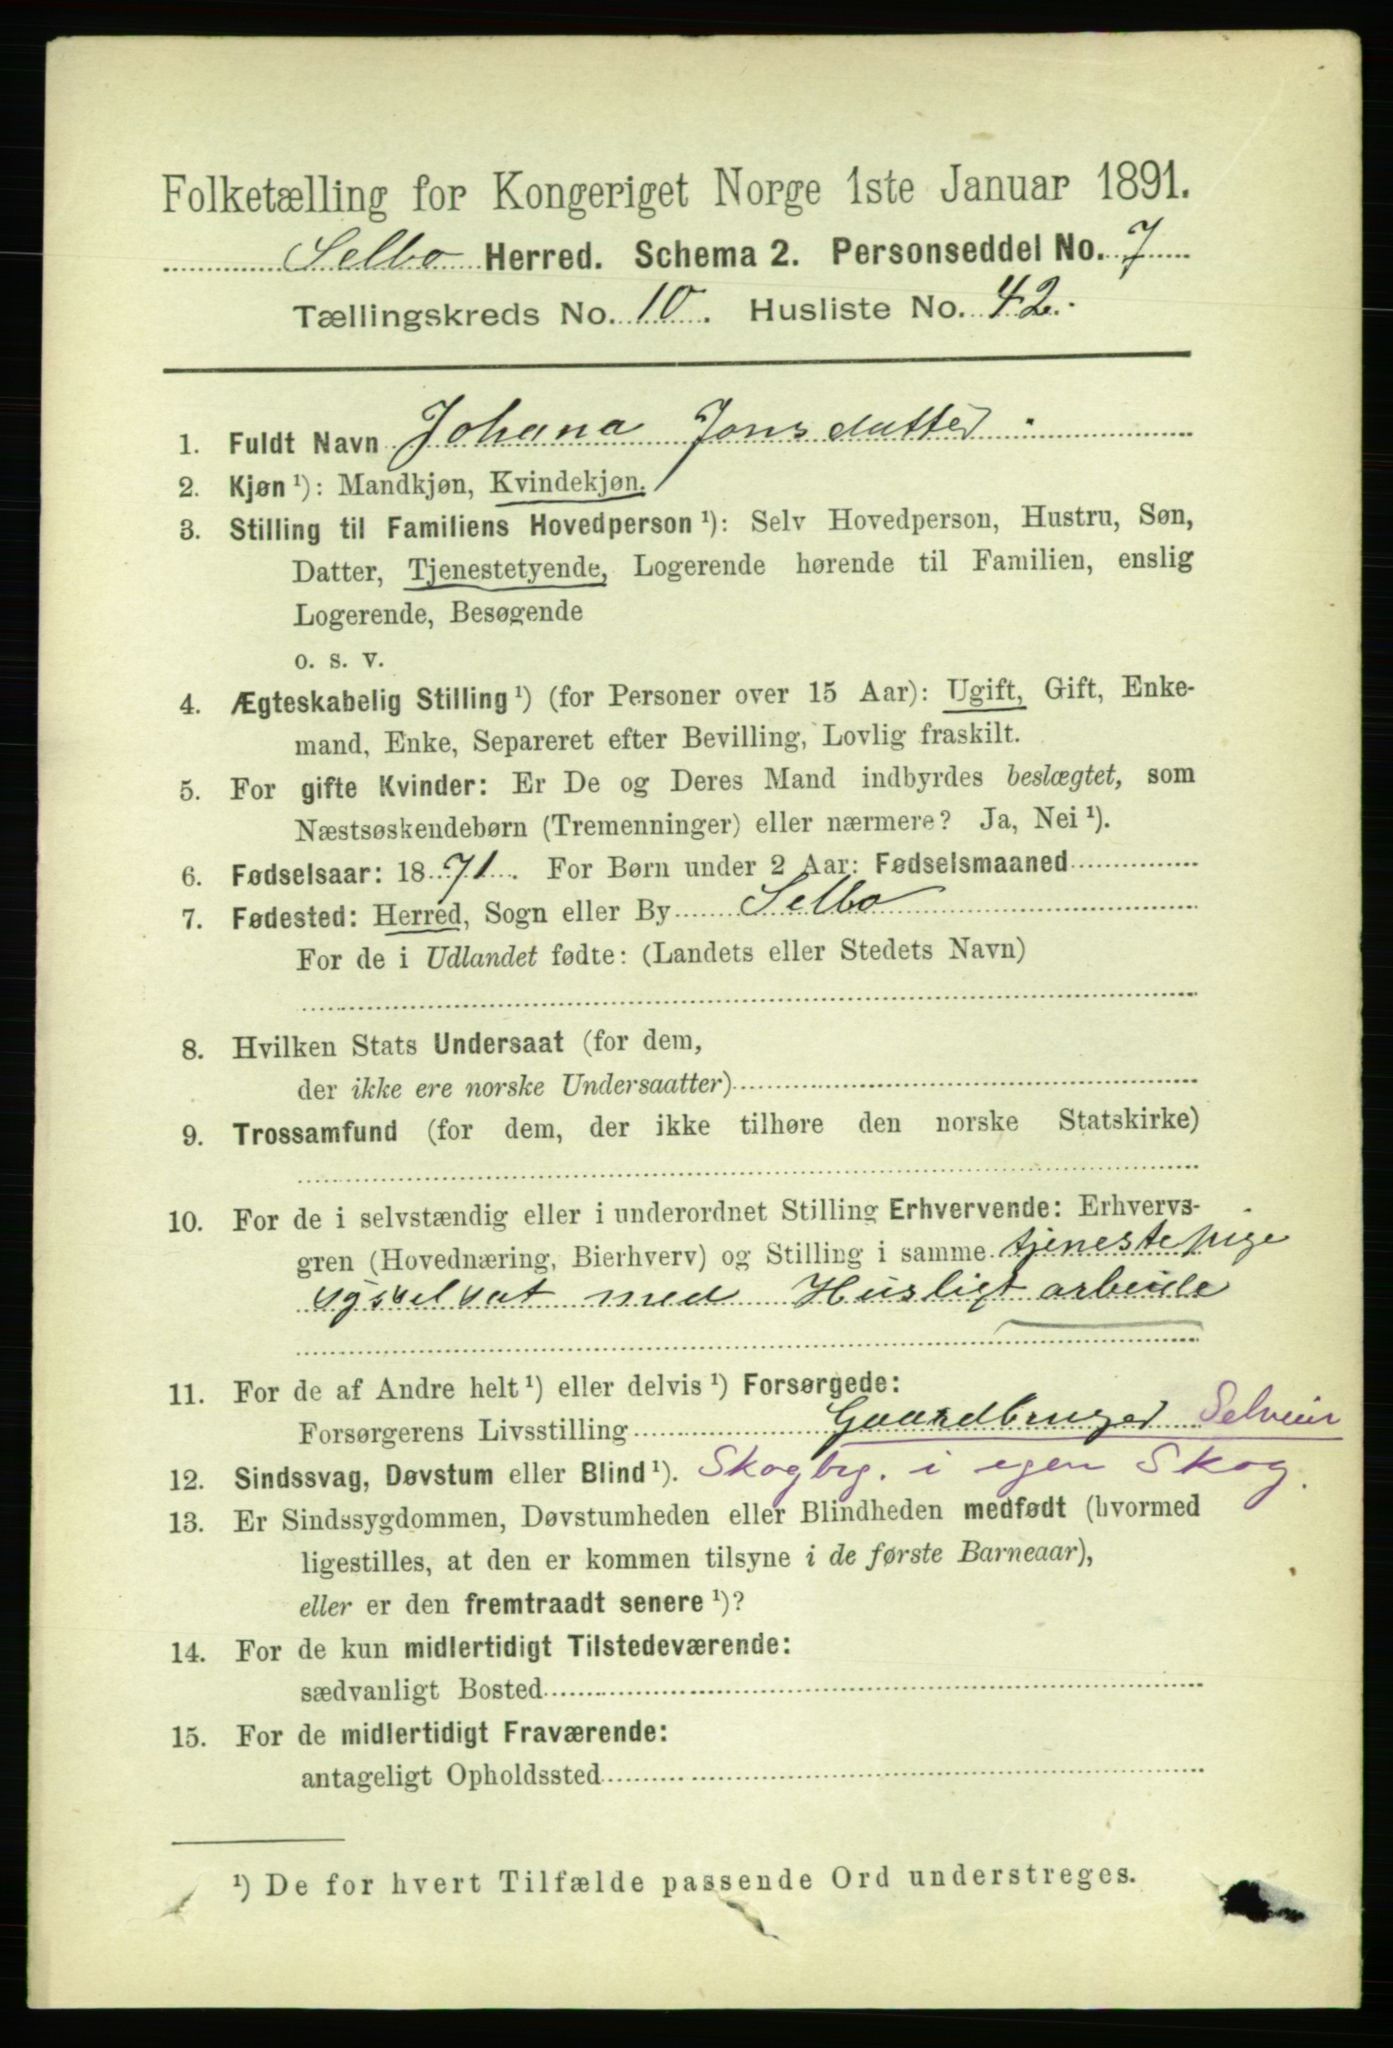 Folketælling for Kongeriget Norge 1ste Januar 1891.
Selbo Herred. Schema 2. Personseddel No. 7
Tællingskreds No. 10. Husliste No. 42.
1. Fuldt Navn Johana Jonsdatter
2. Kjøn ¹): Mandkjøn, Kvindekjøn.
3. Stilling til Familiens Hovedperson ¹): Selv Hovedperson, Hustru, Søn,
Datter, Tjenestetyende, Logerende hørende til Familien, enslig
Logerende, Besøgende
o. s. v.
4. Ægteskabelig Stilling ¹) (for Personer over 15 Aar): Ugift, Gift, Enke-
mand, Enke, Separeret efter Bevilling, Lovlig fraskilt.
5. For gifte Kvinder: Er De og Deres Mand indbyrdes beslægtet, som
Næstsøskendebørn (Tremenninger) eller nærmere? Ja, Nei ¹).
6. Fødselsaar: 1871. For Børn under 2 Aar: Fødselsmaaned
7. Fødested: Herred, Sogn eller By Selbo
For de i Udlandet fødte: (Landets eller Stedets Navn)
8. Hvilken Stats Undersaat (for dem,
der ikke ere norske Undersaatter)
9. Trossamfund (for dem, der ikke tilhøre den norske Statskirke)
10. For de i selvstændig eller i underordnet Stilling Erhvervende: Erhvervs-
gren (Hovednæring, Bierhverv) og Stilling i samme tjenestepige
sysselsat med Husligt arbeide
11. For de af Andre helt ¹) eller delvis ¹) Forsørgede:
Forsørgerens Livsstilling Gaardbruger Selveier
12. Sindssvag, Døvstum eller Blind ¹). Skogbrg. i egen Skog.
13. Er Sindssygdommen, Døvstumheden eller Blindheden medfødt (hvormed
ligestilles, at den er kommen tilsyne i de første Barneaar),
eller er den fremtraadt senere ¹)?
14. For de kun midlertidigt Tilstedeværende:
sædvanligt Bosted
15. For de midlertidigt Fraværende:
antageligt Opholdssted
¹) De for hvert Tilfælde passende Ord understreges.